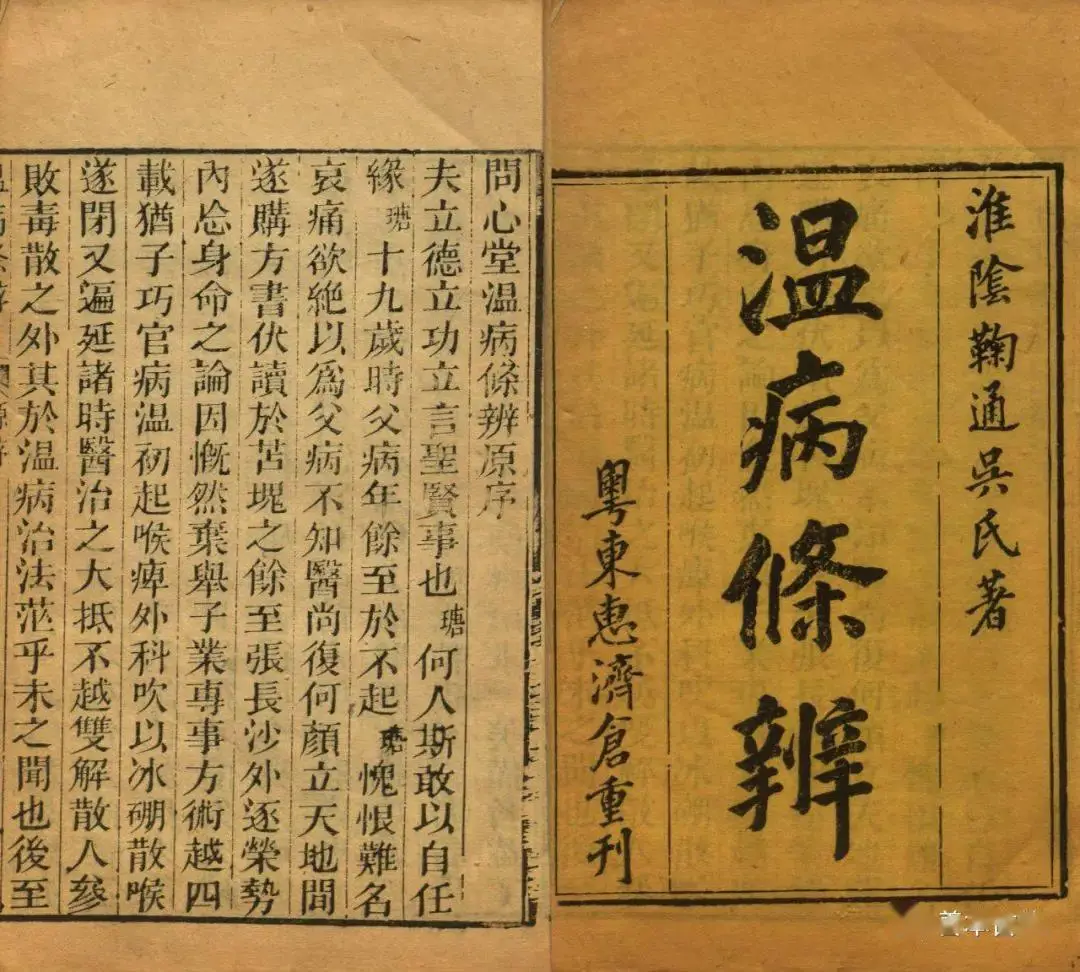 淮陰鞠通吳氏著
温病條辨
粵東惠濟倉重刊
問心堂温病條辨原序
夫立德立功立言聖賢事也瑭何人斯敢以自任
緣瑭十九歲時父病年餘至於不起瑭愧恨難名
哀痛欲絶以爲父病不知醫尚復何顏立天地間
遂購方書伏讀於苫塊之餘至張長沙外逐榮勢
內忘身命之論因慨然棄舉子業專事方術越四
載猶子巧官病温初起喉痺外科吹以冰硼散喉
遂閉又遍延諸時醫治之大抵不越雙解散人參
敗毒散之外其於温病治法茫乎未之聞也後至